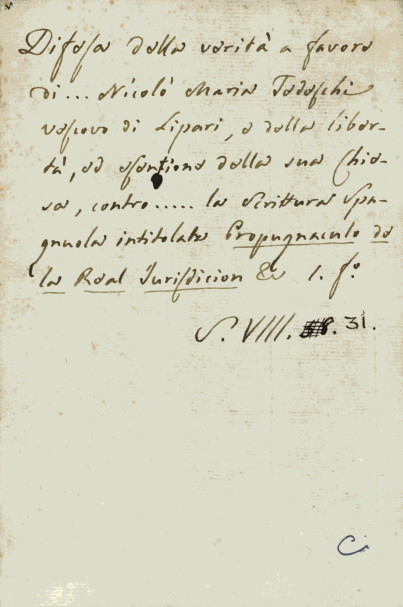 Difesa della verità a favore
di... Nicolò Maria Tedeschi
vescovo di Lipari, e della liber-
tà, ed esentione della sua Chie-
sa, contro..... la Scrittura Spa-
gnuola intitolata Propugnaculo de
la Real Jurisdicion &c 1. fº
S. VIII. 31.